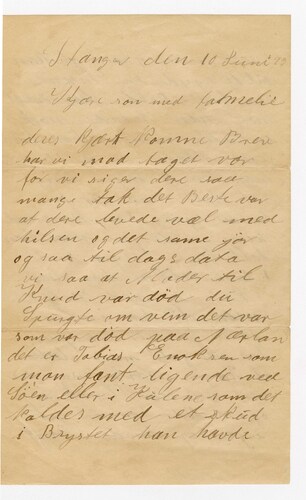 Stanger den 10 Juni
Kjære søn med famelie
deres kjært komne Breve
har vi mod taget vor
for vi siger dere saa
mange tak det Beste var
at dere levede vel med
hilsen og det same jør
og saa til dags data
vi saa at Moder til
Knud var død du
spurgte om vem det var
som var død paa Nærlan
det er Tobias Enoksen som
man fant ligende ved
Søen eller i Hulene som det
kaldes med et skud
i Brystet han havde